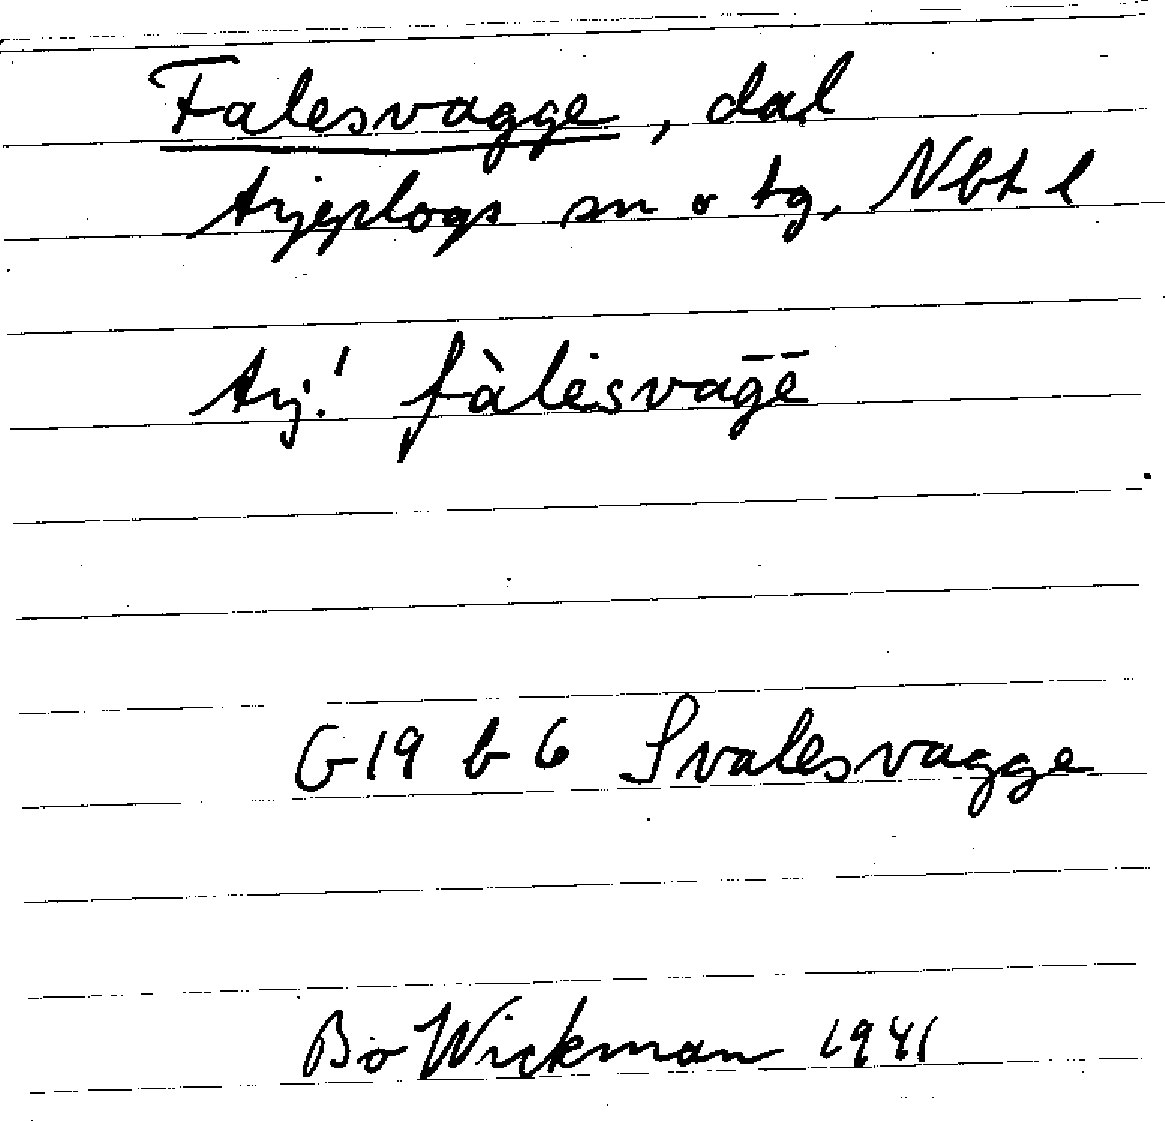 Falesvagge, dal
Arjeplogs sn o tg, Nbt l
Arj.! fàlėsvaḡē
G19 b 6 Svalesvagge
Bo Wickman 1941